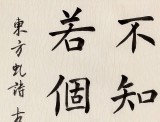 不知
若個
東方虬詩 古